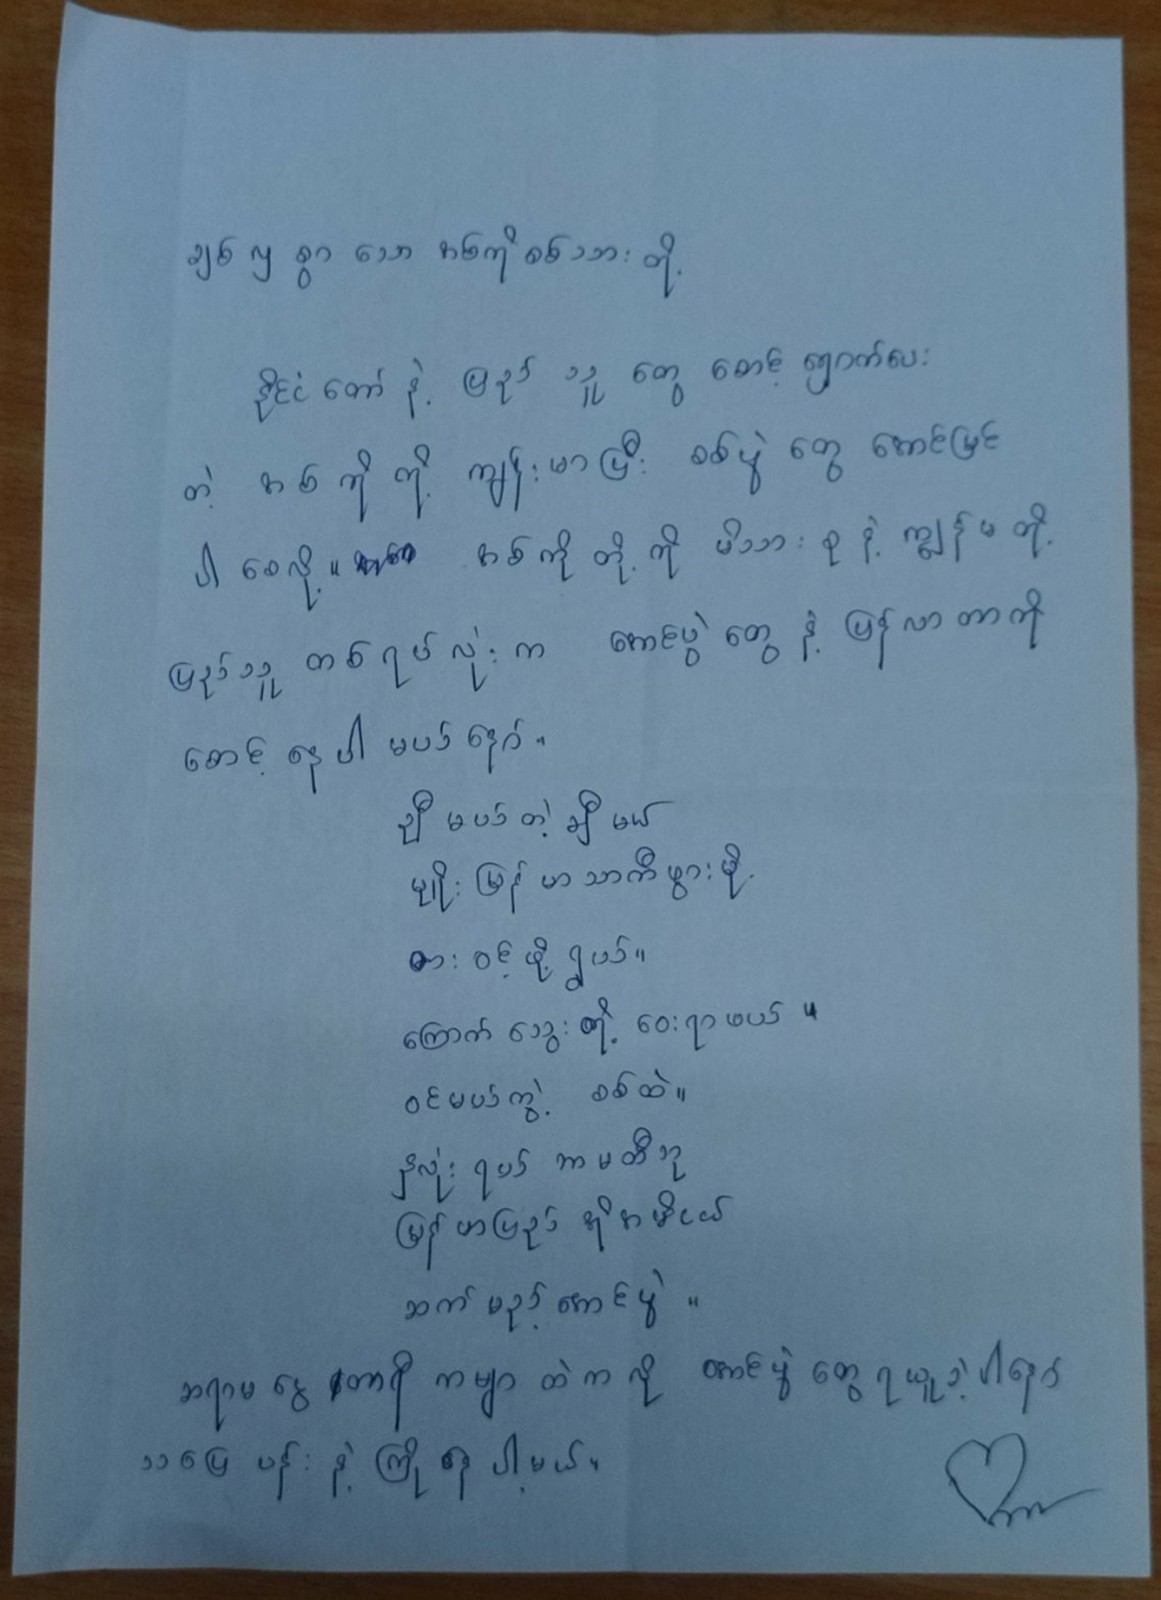 ချစ်လှစွာသော အစ်ကိုစစ်သားတို့
နိုင်ငံတော်နဲ့ ပြည်သူတွေ စောင့်ရှောက်ပေး
တဲ့ အစ်ကိုတို့ ကျန်းမာပြီး စစ်ပွဲတွေ အောင်မြင်
ပါစေလို့။ အစ်ကိုတို့ကို မိသားစုနဲ့ ကျွန်မတို့
ပြည်သူတစ်ရပ်လုံးက အောင်ပွဲတွေနဲ့ ပြန်လာတာကို
စောင့်နေပါမယ်နော်။
ချီမယ်တဲ့ချီမယ်
မျိုးမြန်မာသာကီဖွားမို့
အားဝင့်ဖို့ရွယ်။
ကြောက်သွေးတို့ ဝေးရာဖယ်။
ဝင်မယ်ကွဲ့ စစ်ထဲ။
ညီလုံးရယ် အာမတိဘု
မြန်မာပြည် အိုအမိငယ်
ဆက်မည့်အောင်ပွဲ။
ဆရာမငွေတာရီ ကဗျာထဲကလို အောင်ပွဲတွေရယူခဲ့ပါနော်
သပြေပန်းနဲ့ကြိုနေပါ့မယ်။